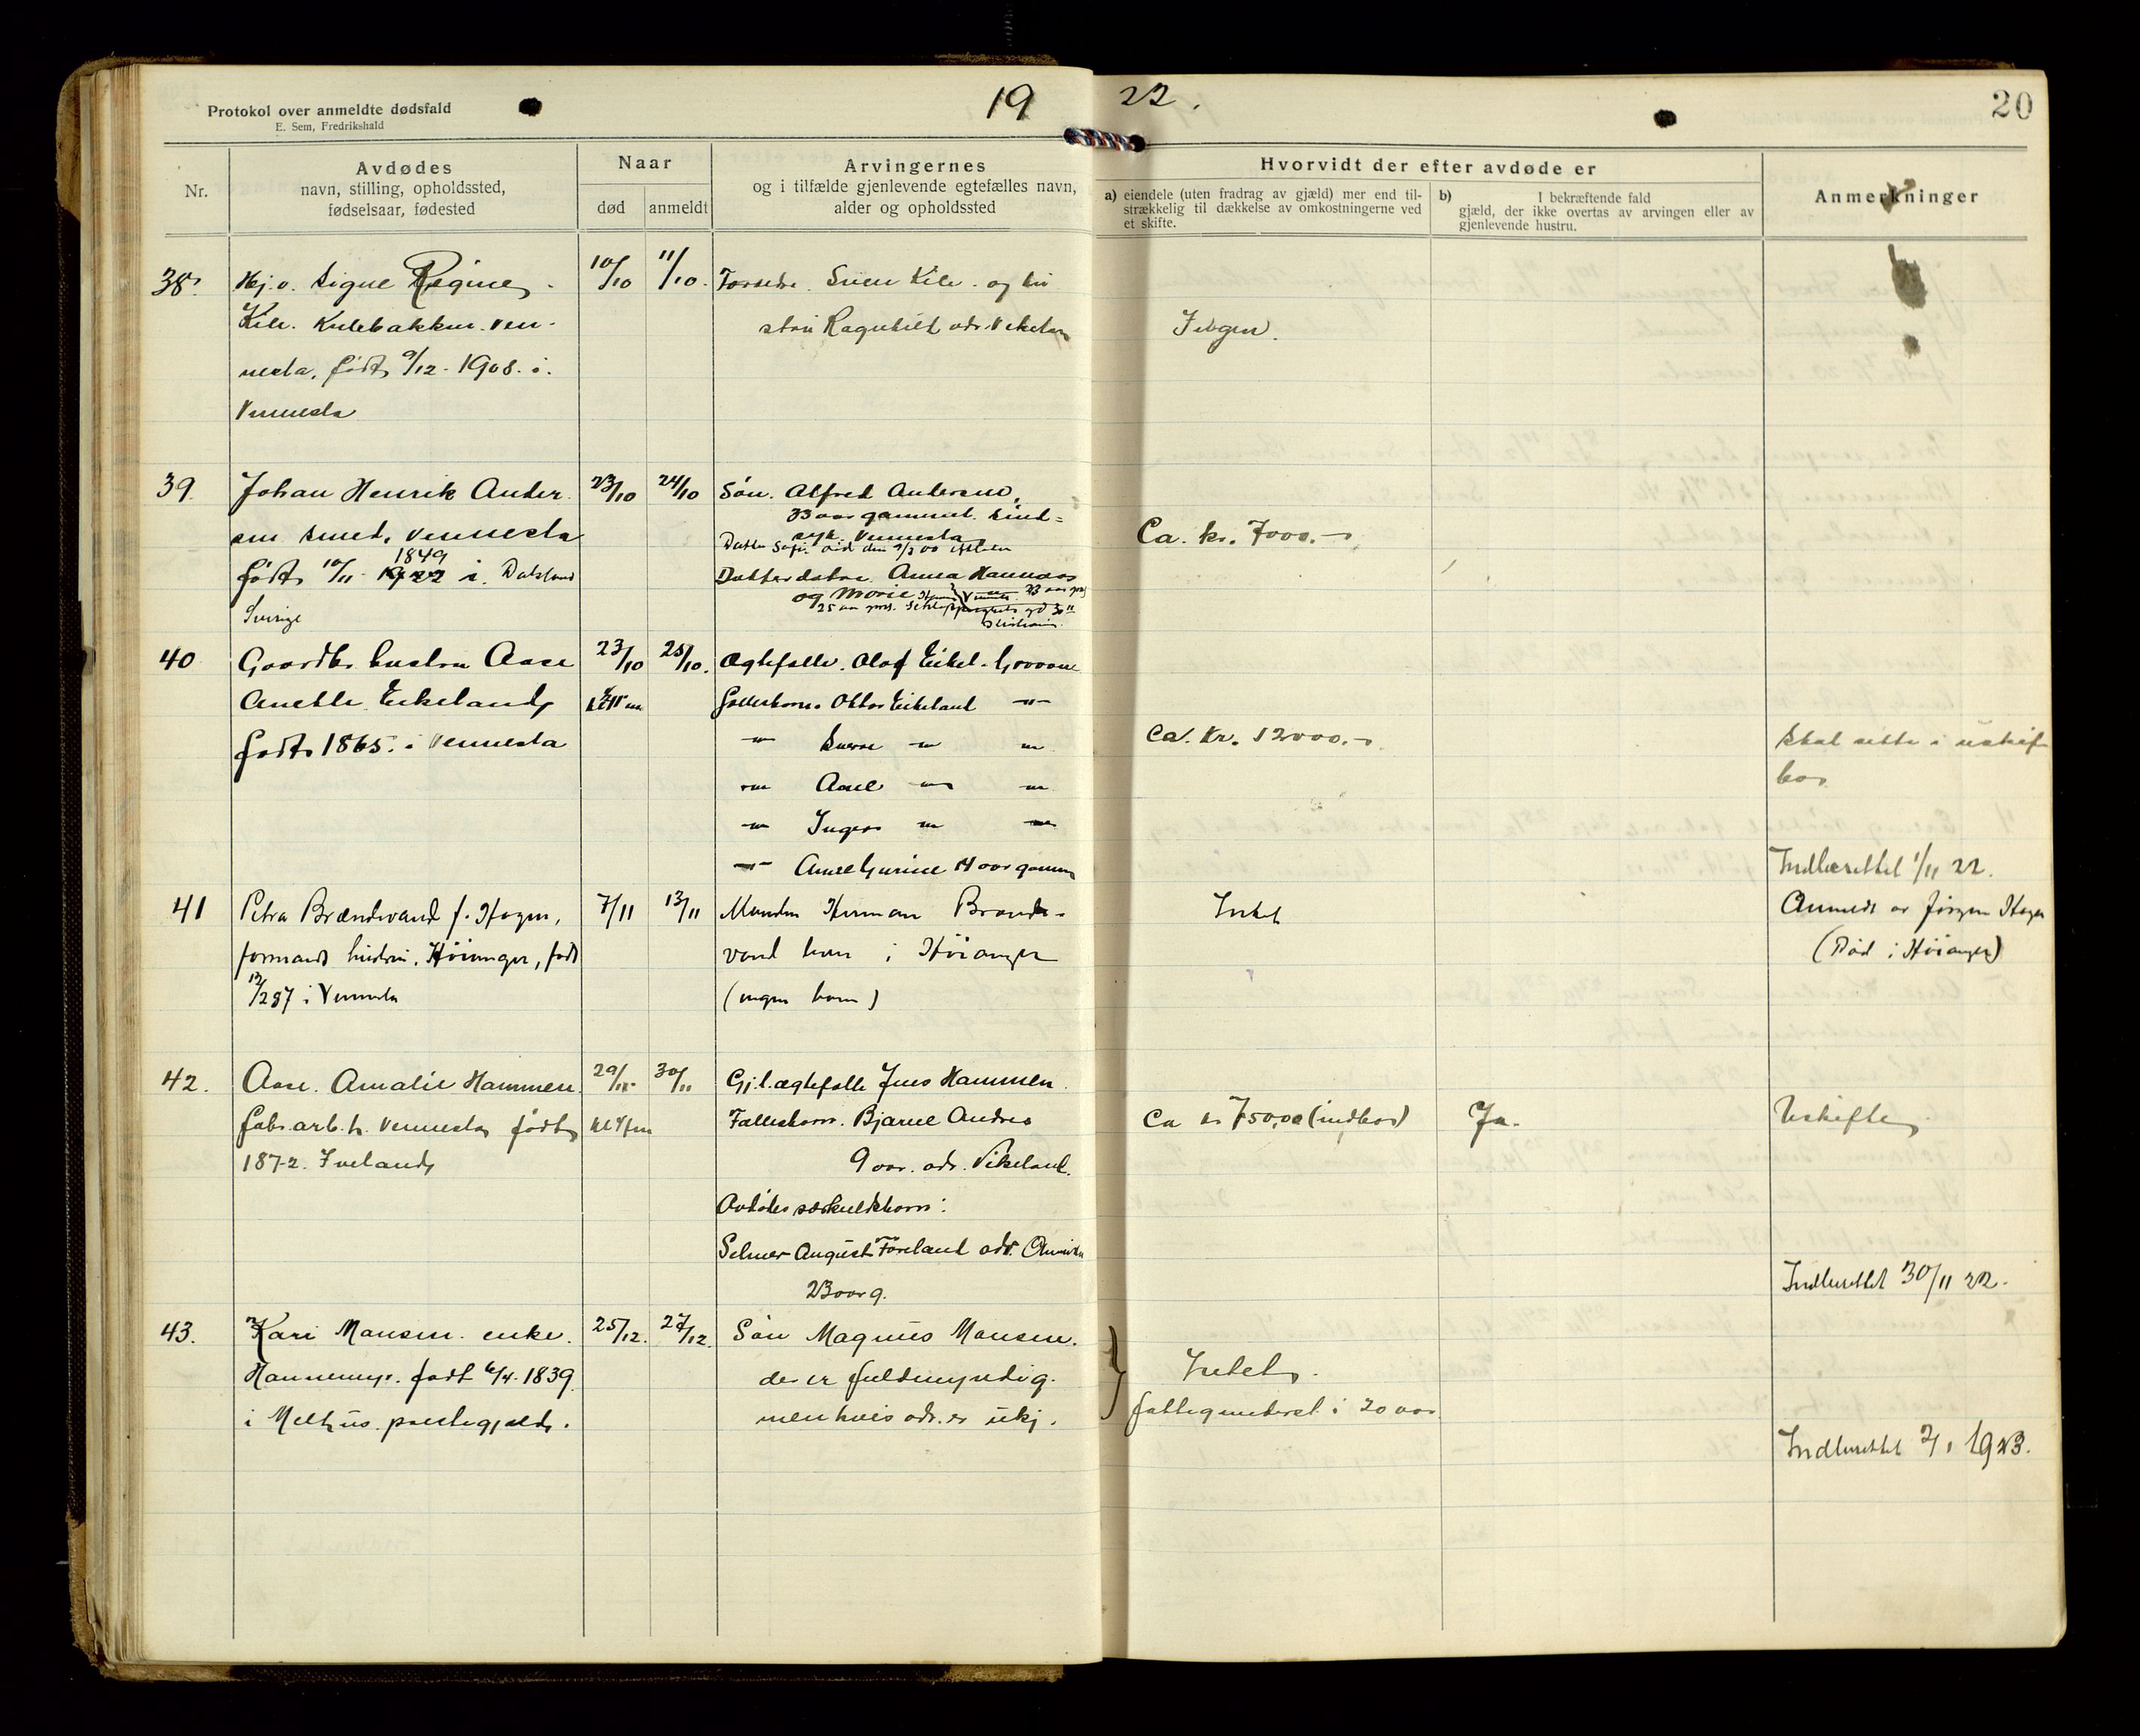 Protokol over anmeldte dødsfald
E. Sem, Fredrikshald
19 22.
20
Nr.
Avdødes
navn, stilling, opholdssted,
fødselsaar, fødested
Naar
død
anmeldt
Arvingernes
og i tilfælde gjenlevende egtefælles navn,
alder og opholdssted
Hvorvidt der efter avdøde er
a) eiendele (uten fradrag av gjæld) mer end til-
strækkelig til dækkelse av omkostningerne ved
et skifte.
b) I bekræftende fald
gjæld, der ikke overtas av arvingen eller av
gjenlevende hustru.
Anmerkninger
38. Hj.v. Signe Regine 10/10 11/10.
Kile. Kulebakken. Ven-
nesla, født 9/12 - 1908. i.
Vennesla
Forældre. Sven Kile. og hu
stru Ragnhild adr. Vikeland
Ingen.
39. Johan Henrik Ander 23/10 24/10
sen smed, Vennesla
1849
født 10/11 i. Dalsland
Sverige
Søn. Alfred Andersen,
33 aar gammel. sind-
syk. Vennesla
Datterdøtre. Anna Hannaas
og Marie
Ca. kr. 7000.-
40 Gaardbr. hustru Aase 23/10 25/10.
Anette Eikeland,
født 1865. i Vennesla
Ægtefælle. Olaf Eikel. Graaane
Fællesbarn. Oktav Eikeland -"-
-"- Sverre -"- -"-
-"- Aasel -"- -"-
-"- Inger -"- -"-
-"- Anne Gurine 14 aar gamm
Ca. Kr. 12000.-
Skal sitte i uskif-
bo.
Indberettet 1/11 22.
41 Petra Brændevand f. Hagen, 7/11 13/11
formands hustru. Höianger, født
12/2 87 i Vennesla
Manden Herman Brænde-
vand bor i Höianger
(ingen barn)
Intet
Anmeldt av Jörgen Hagen
(Död i Höianger)
42. Aase. Amalie Hammen. 29/11 30/11
fabr.arb. h. Vennesla født
1872. Iveland
Gj.l. ægtefælle Jens Hammen.
Fællesbarn. Bjarne Andreas
9 aar. adr. Vikeland.
Avdødes særkuldsbarn:
Selmer August Føreland adr.
23 aar g.
Ca kr 750,00 (indbo)
Ja.
Uskifte
Indberettet 30/11 22.
43. Kari Monsen. enke. 25/12. 27/12.
Hannemyr. født 6/4. 1839
i Melhus. prestegjeld.
Søn Magnus Monsen.
der er fuldmyndig.
men hvis adr. er ukj.
Intet.
fattigunderst. i 20 aar
Indberettet 2/1 1923.